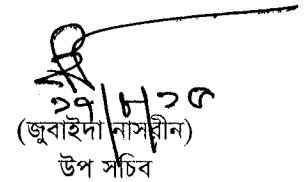 ১৭/৮/১৫
(জুবাইদা নাসরীন)
উপ সচিব